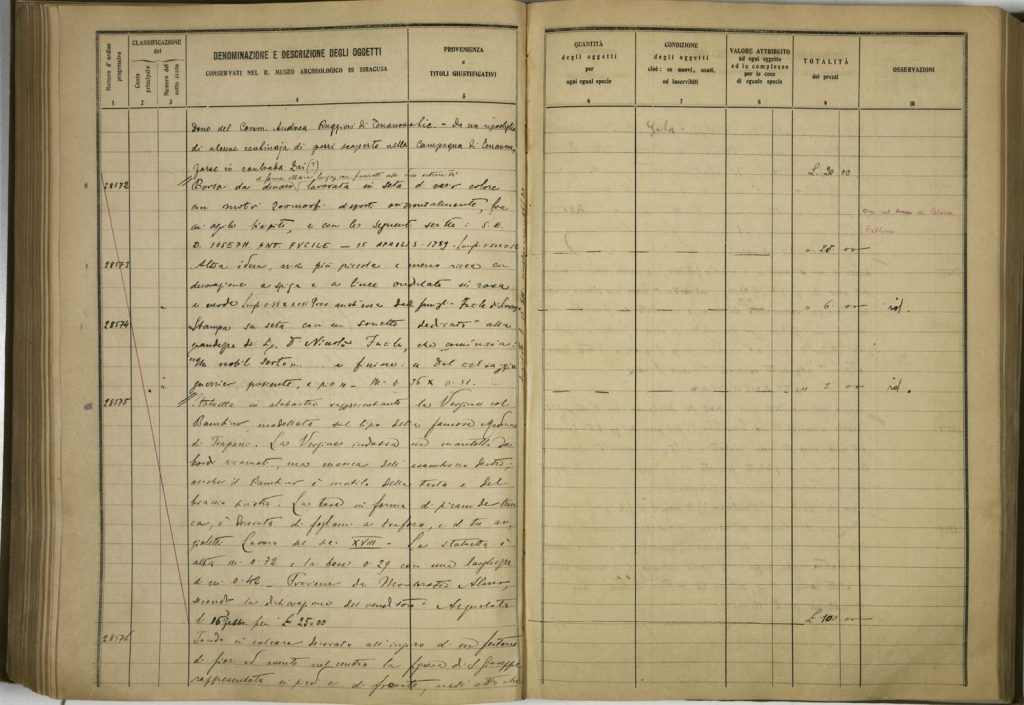 Numero d'ordine progressivo
CLASSIFICAZIONE
del
Conto principale
Numero del sotto conto
DENOMINAZIONE E DESCRIZIONE DEGLI OGGETTI
CONSERVATI NEL R. MUSEO ARCHEOLOGICO DI SIRACUSA
PROVENIENZA
e
TITOLI GIUSTIFICATIVI
QUANTITÀ
degli oggetti
per
ogni egual specie
CONDIZIONE
degli oggetti
cioè: se nuovi, usati,
od inservibili
VALORE ATTRIBUTO
ad ogni oggetto
ed in complesso
per le cose
di eguale specie
TOTALITÀ
dei prezzi
OSSERVAZIONI
1 2 3 4 5 6 7 8 9 10
Dono del Comm. Andrea Ruggieri di - Da un ripostiglio
Gela
di alcune centinaja di pezzi scoperto nella Campagna di
in contrada (?)
L. 20 00
28572 Borsa da denaro lavorata in seta di vario colore
con motivi zoomorfi disposti orizzontalmente,
e con le seguenti scritte: S. E.
D. IOSEPH. ANT. FUCILE — 15 APRILIS. 1789.
" 25 00
28573 Altra idem, ma più piccola e meno ricca con
decorazione a spiga e a linee ondulate in rosa
e verde
" 6 00 id.
28574 Stampa su seta con un sonetto dedicato alla
di D Fucile, che comincia:
"Un nobil e finisce: a del
guerrier, possente, e pio" - M. 0.36 x 0.51.
" 3 00 id.
28575 Statuetta in alabastro rappresentante la Vergine col
Bambino modellata sul tipo della famosa Madonna
di Trapani. La Vergine indossa un mantello dai
bordi ricamati, ma manca dell'avambraccio destro;
anche il Bambino è mutilo della testa e del
braccio destro. La base in forma di piramide tron
ca, è decorata di fogliami a traforo, e di tre an
gioletti. Lavoro del sec. XVIII - La statuetta è
alta m. 0.72 e la base 0.29 con una larghezza
di m. 0.42 - Proviene da Monterosso Almo,
secondo la dichiarazione del venditore. Acquistata
per L 25.00
L 100 00
28576 Tondo in calcare decorato all'ingiro di un festone
di fiori ed avente nel centro la figura di S. Giuseppe
rappresentata in piedi e di fronte, nell'atto che